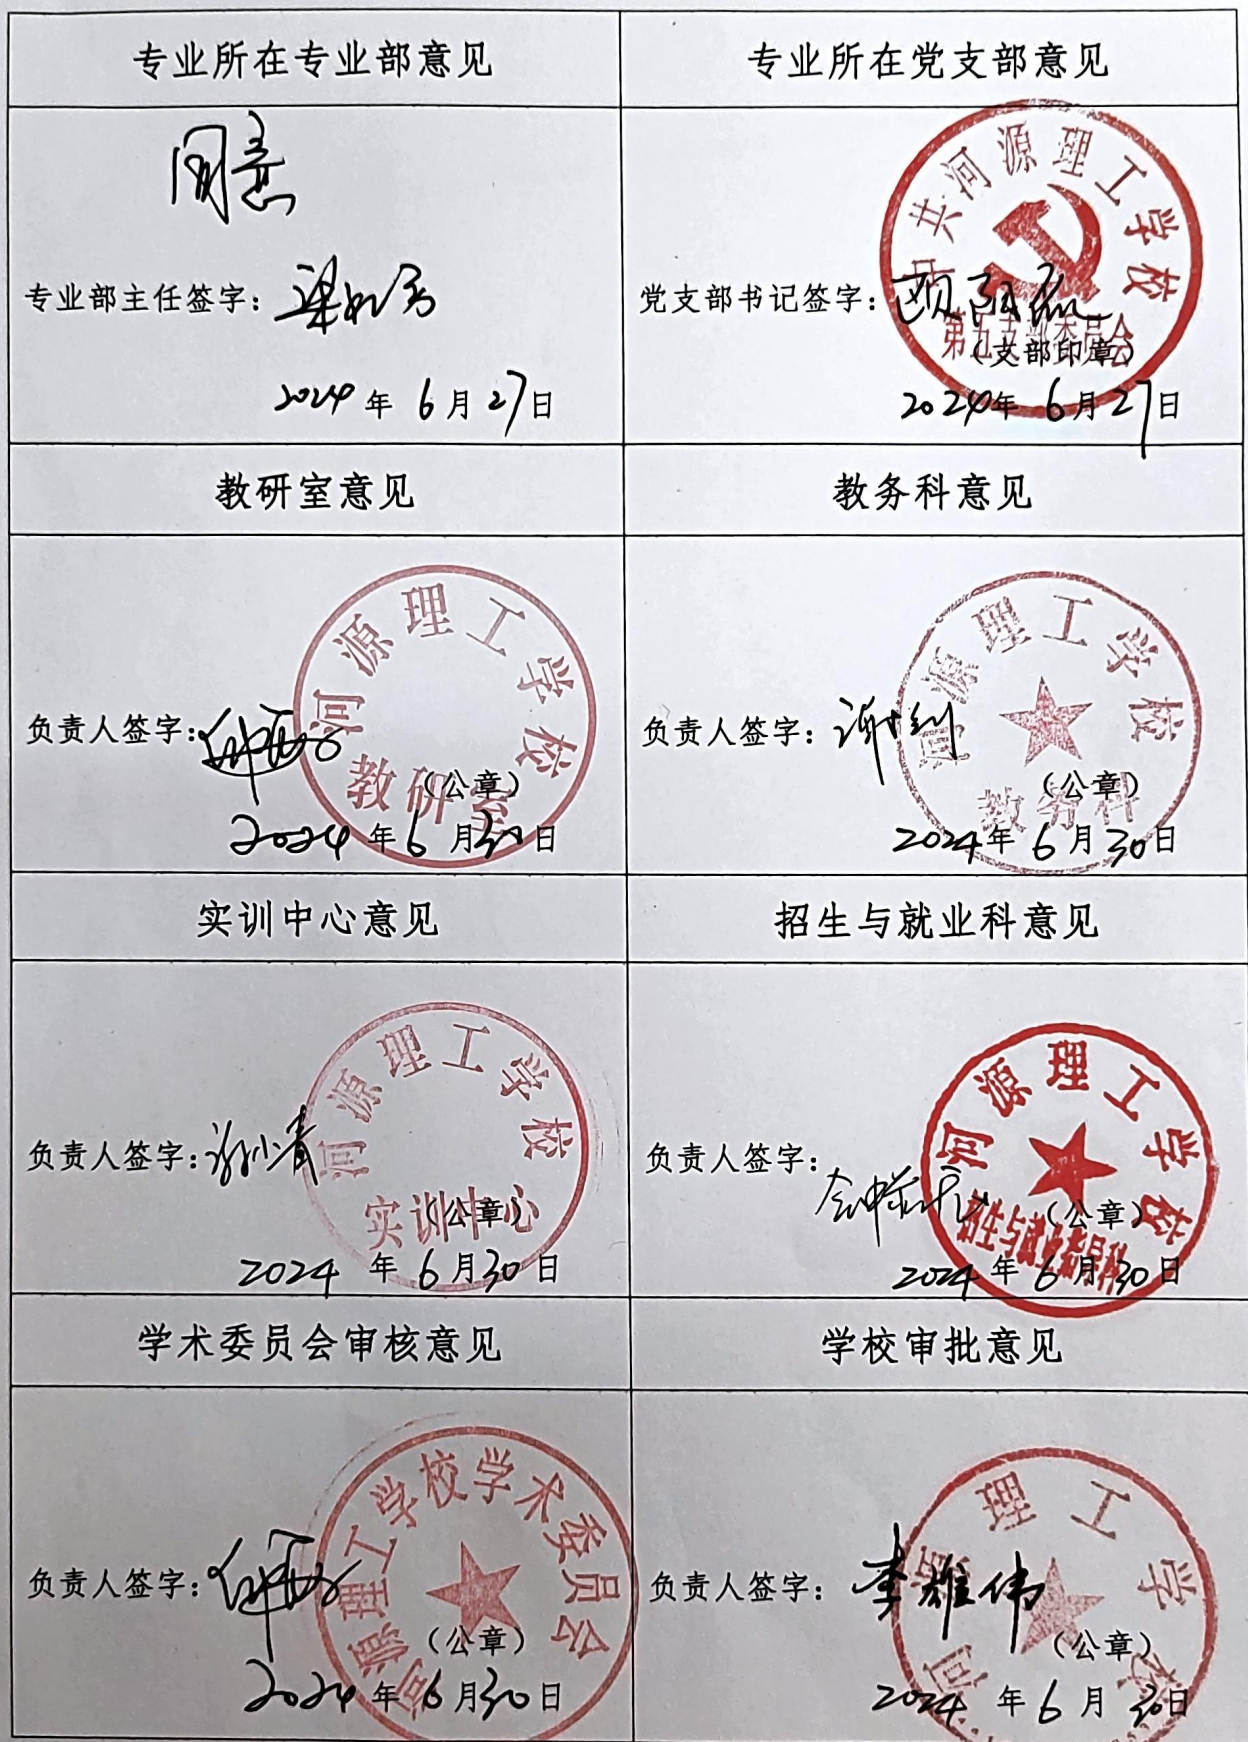 专业所在专业部意见
专业所在党支部意见
同意
专业部主任签字:
2024年6月27日
中共河源理工学校
第九支部委员会
党支部书记签字:欧阳磊
(支部印章)
2024年6月27日
教研室意见
教务科意见
河源理工学校
教研室
负责人签字:
(公章)
2024年6月30日
河源理工学校
教务科
负责人签字:
(公章)
2024年6月30日
实训中心意见
招生与就业科意见
河源理工学校
实训中心
负责人签字:谢小青
(公章)
2024年6月30日
河源理工学校
招生与就业指导科
负责人签字:
(公章)
2024年6月30日
学术委员会审核意见
学校审批意见
河源理工学校学术委员会
负责人签字:
(公章)
2024年6月30日
河源理工学校
负责人签字:李雄伟
(公章)
2024年6月30日